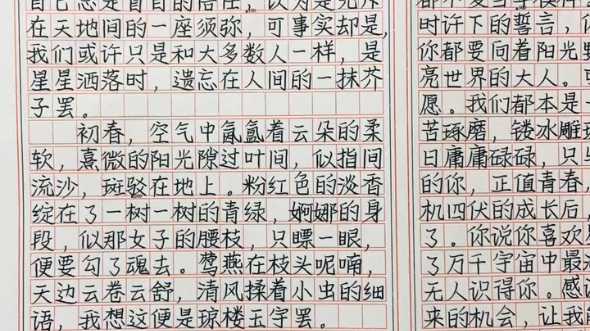 自己总是盲目的信任，认为是充斥
在天地间的一座须弥，可事实却是，
我们或许只是和大多数人一样，是
星星洒落时，遗忘在人间的一抹芥
子罢。
初春，空气中氤氲着云朵的柔
软，熹微的阳光隙过叶间，似指间
流沙，斑驳在地上。粉红色的淡香
绽在了一树一树的青绿，婀娜的身
段，似那女子的腰枝，只瞟一眼，
便要勾了魂去。莺燕在枝头呢喃，
天边云卷云舒，清风揉着小虫的细
语，我想这便是琼楼玉宇罢。
时许下的誓言，你
你都要向着阳光野
亮世界的大人。可
愿。我们都本是一
苦琢磨，镂冰雕琢
日庸庸碌碌，只与
的你，正值青春，
机四伏的成长后，
了。你说你喜欢
了万千宇宙中最
无人识得你。感
来的机会，让我